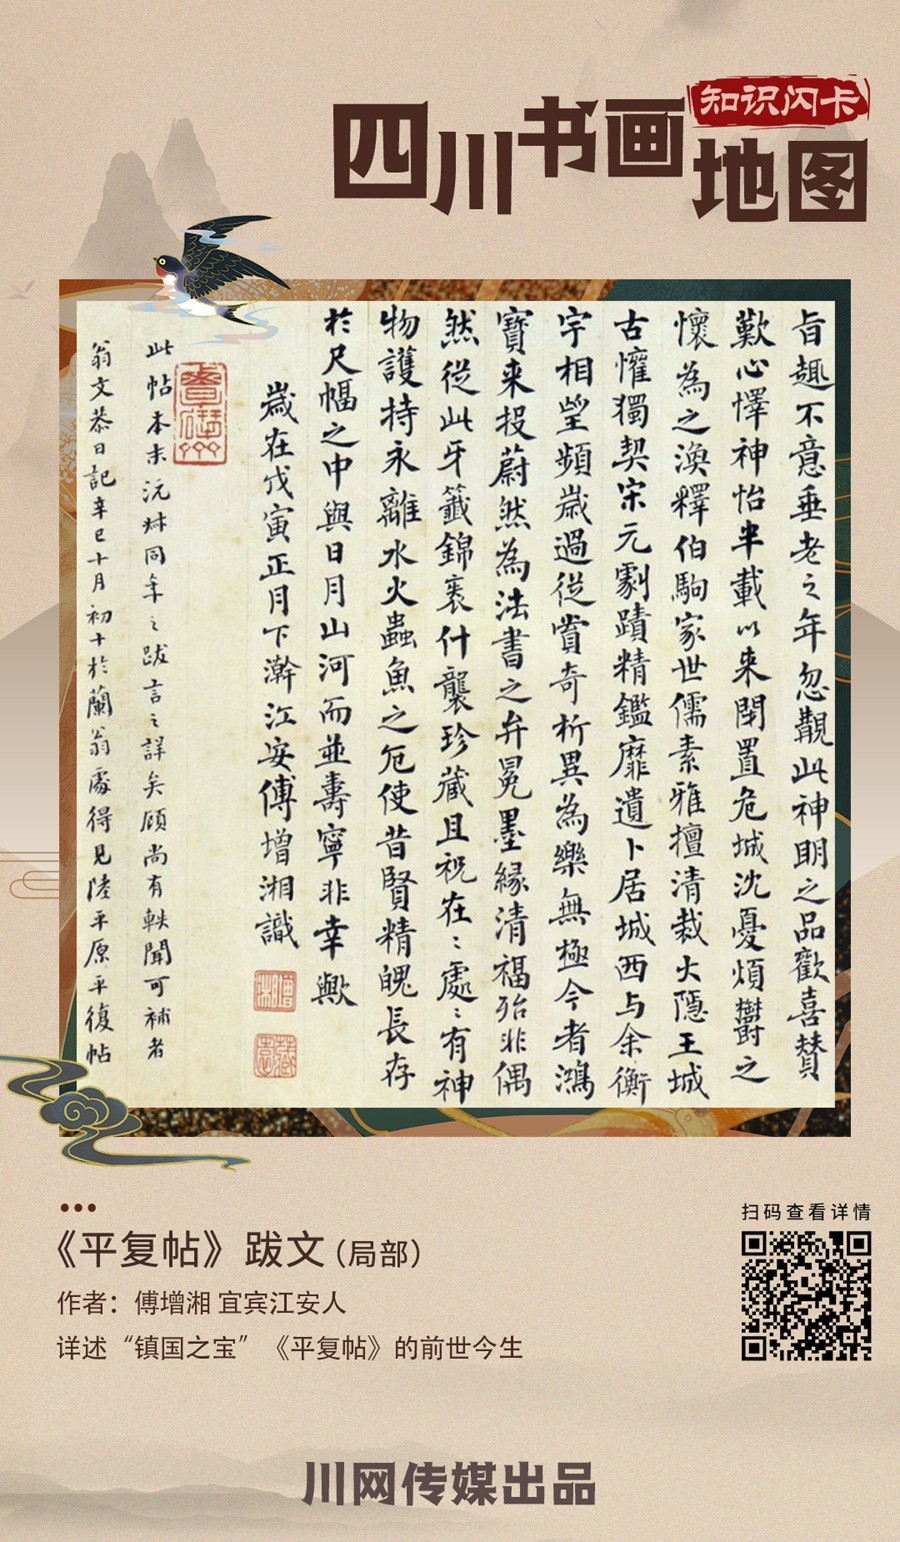 知识闪卡
四川书画地图
旨趣不意垂老之年忽觀此神明之品歡喜贊
歎心懌神怡半載以来閉置危城沈憂煩鬱之
懷為之渙釋伯駒家世儒素雅擅清裁大隱王城
古懽獨契宋元劇蹟精鑑靡遺卜居城西与余衡
宇相望頻歲過從賞奇析異為樂無極今者鴻
寶来投蔚然為法書之弁冕墨緣清福殆非偶
然從此牙籤錦裹什襲珍藏且祝在〻處〻有神
物護持永離水火蟲魚之厄使昔賢精魄長存
於尺幅之中與日月山河而並壽寧非幸歟
歲在戊寅正月下澣江安傅增湘識
此帖本末沅叔同年之跋言之詳矣顧尚有軼聞可補者
翁文恭日記辛巳十月初十於蘭翁處得見陸平原平復帖
扫码查看详情
《平复帖》跋文（局部）
作者：傅增湘 宜宾江安人
详述“镇国之宝”《平复帖》的前世今生
川网传媒出品